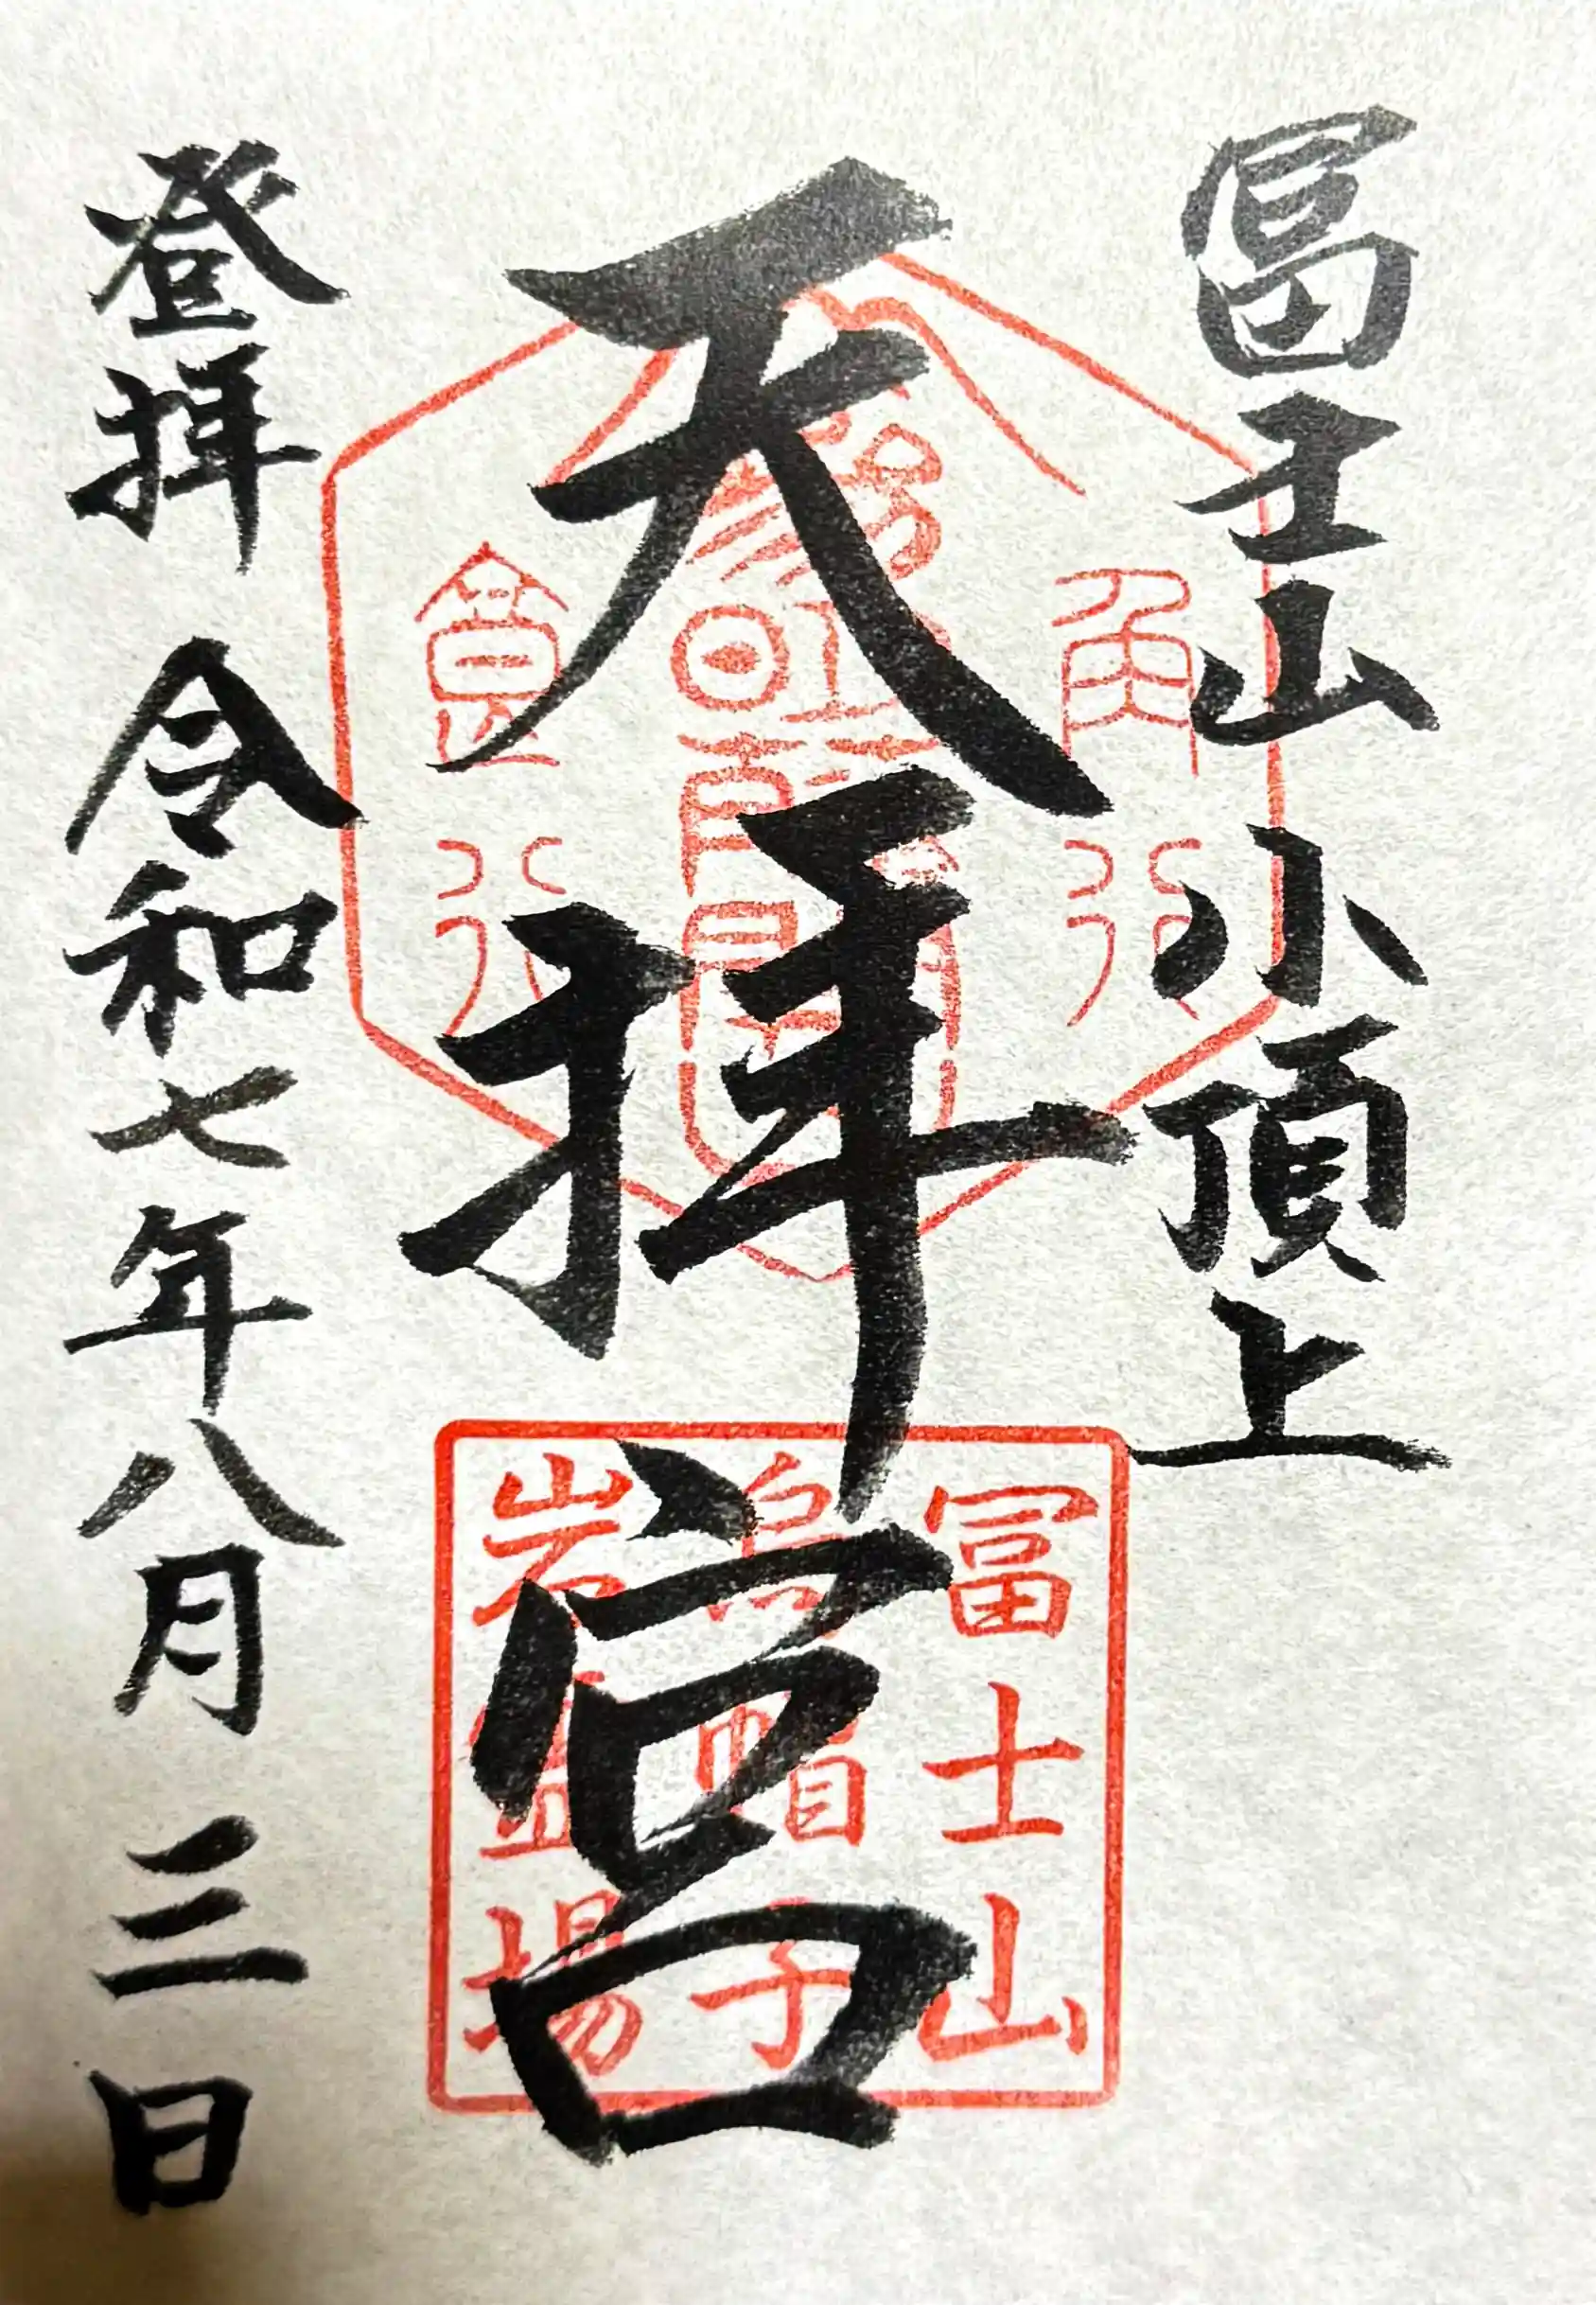 冨士山小頂上
天拝宮
登拝 令和七年八月三日
角行
食行
冨士山
烏帽子
岩霊場